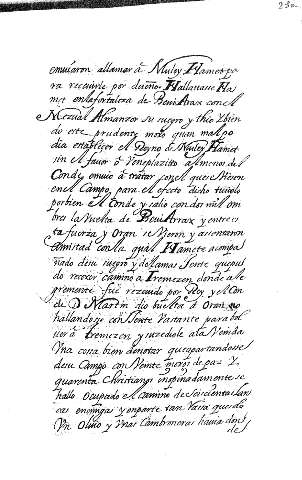 embiaron allamar á Muley Hamet pa
ra recevirle por dueño. Hallavase Ha
met en la fortaleza de Beni Arax con el
Mezuar Almanzor su suegro y tio
do este prudente moro quan mal po
dia establecer el Reyno de Muley Hamet
sin el favor ó Veneplazito almenos del
Conde, envió á tratar con el que se viesen
en el Campo, para el efecto dicho tuvolo
por bien el Conde y salio con dos mil om
bres la buelta de Beni Arrax y entre es
ta fuerza y Oran se vieron y asentaron
amistad con la qual Hamete acompa
ñado de su suegro y de la mas Jente que pu
do recoxer caminó á Tremezen donde ale
gremente fué rezevido por Rey y el Con
de D Martin dio buelta á Oran, no
hallandose con Jente bastante para bol
ver á Tremezen y sucediole á la venida
Una cosa bien denotar que apartandose
de su Campo con veinte moros de paz y
quarenta Christianos inopinadamente se
halló ocupado el camino de seiscientas lan
zas enemigas y en parte tan rasa que solo
Un Olivo y Unas Cambroneras havia don
de